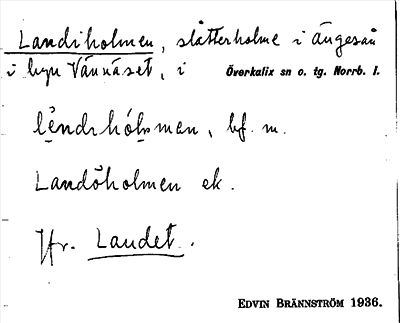 Landiholmen, slåtterholme i Ängesån
i byn Vännäset, i Överkalix sn o. tg. Norrb. l.
lèndıhól̥mən, bf. m.
Landöholmen ek.
Jfr. Landet.
EDVIN BRÄNNSTRÖM 1936.